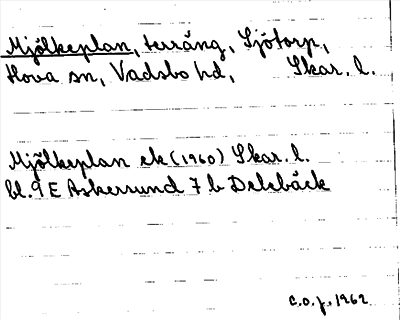 Mjölkeplan, terräng, Sjötorp,
Hova sn, Vadsbo hd, Skar. l.
Mjölkeplan ek (1960) Skar. l.
bl. 9 E Askersund 7 b Delebäck
C.O.J., 1962